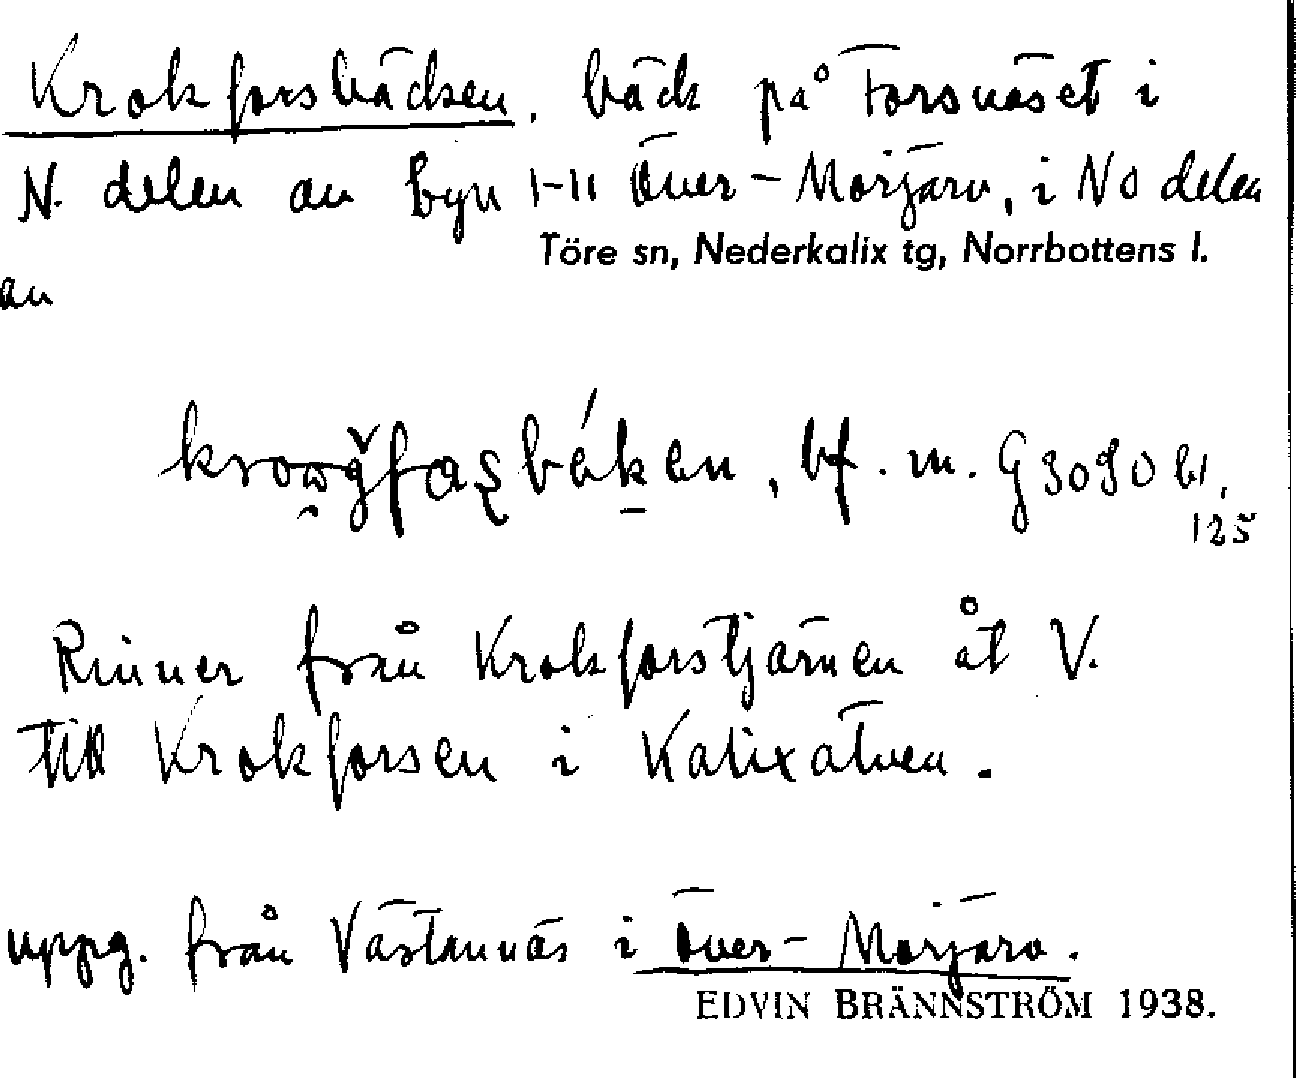 Krokforsbäcken, bäck på Forsnäset i
N. delen av byn 1-11 Över-Morjärv, i NO delen
Töre sn, Nederkalix tg, Norrbottens l.
av
bf. m. G3090 bl,
125
Rinner från Krokforstjärnen åt V.
till Krokforsen i Kalixälven.
uppg. från Västannäs i Över-Morjärv.
EDVIN BRÄNNSTRÖM 1938.